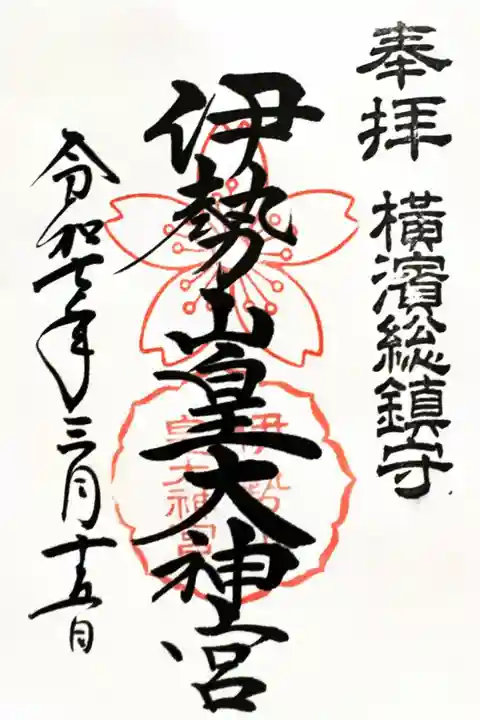 奉拝 横濱総鎮守
伊勢山皇大神宮
伊勢山
皇大神宮
令和七年三月十五日